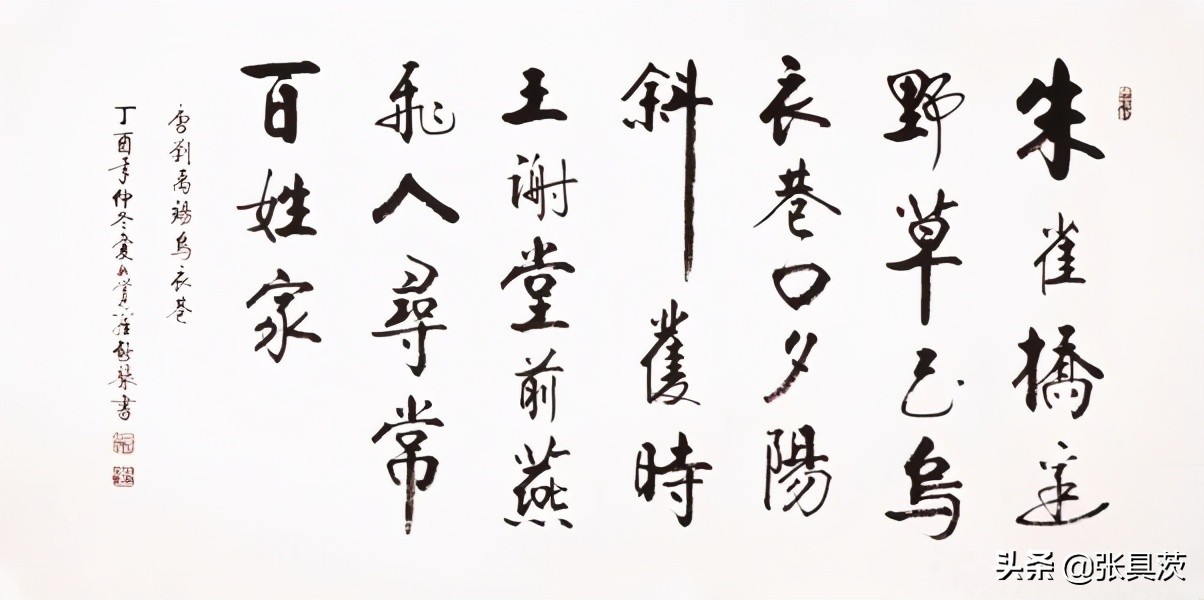 朱雀橋邊
野草已烏
衣巷口夕陽
斜舊時
王謝堂前燕
飛入尋常
百姓家
唐劉禹錫烏衣巷
丁酉年仲冬夏書
头条 @张具茨